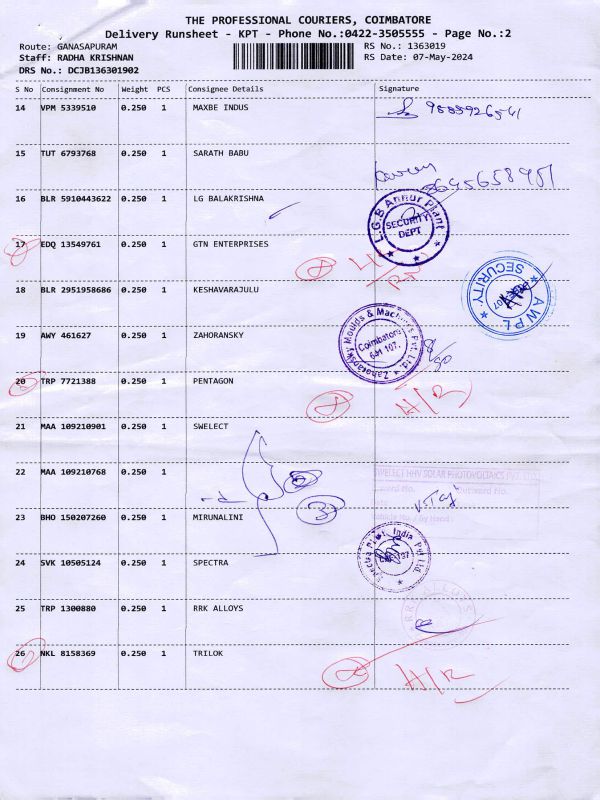 THE PROFESSIONAL COURIERS, COIMBATORE
Delivery Runsheet - KPT - Phone No.:0422-3505555 - Page No.:2
Route: GANASAPURAM RS No.: 1363019
Staff: RADHA KRISHNAN RS Date: 07-May-2024
DRS No.: DCJB136301902
S No Consignment No Weight PCS Consignee Details Signature
14 VPM 5339510 0.250 1 MAXBE INDUS
15 TUT 6793768 0.250 1 SARATH BABU
16 BLR 5910443622 0.250 1 LG BALAKRISHNA
L.G.B Annur Plant
SECURITY
DEPT
17 EDQ 13549761 0.250 1 GTN ENTERPRISES
18 BLR 2951958686 0.250 1 KESHAVARAJULU
AWPL
SECURITY
19 AWY 461627 0.250 1 ZAHORANSKY
Zahoransky Moulds & Machines Pvt. Ltd.
Coimbatore
641 107.
20 TRP 7721388 0.250 1 PENTAGON
H/R
21 MAA 109210901 0.250 1 SWELECT
22 MAA 109210768 0.250 1
SWELECT HHV SOLAR PHOTOVOLTAICS PVT. LTD.
23 BHO 150207260 0.250 1 MIRUNALINI
3
24 SVK 10505124 0.250 1 SPECTRA
India Pvt Ltd.
25 TRP 1300880 0.250 1 RRK ALLOYS
26 NKL 8158369 0.250 1 TRILOK
H/R